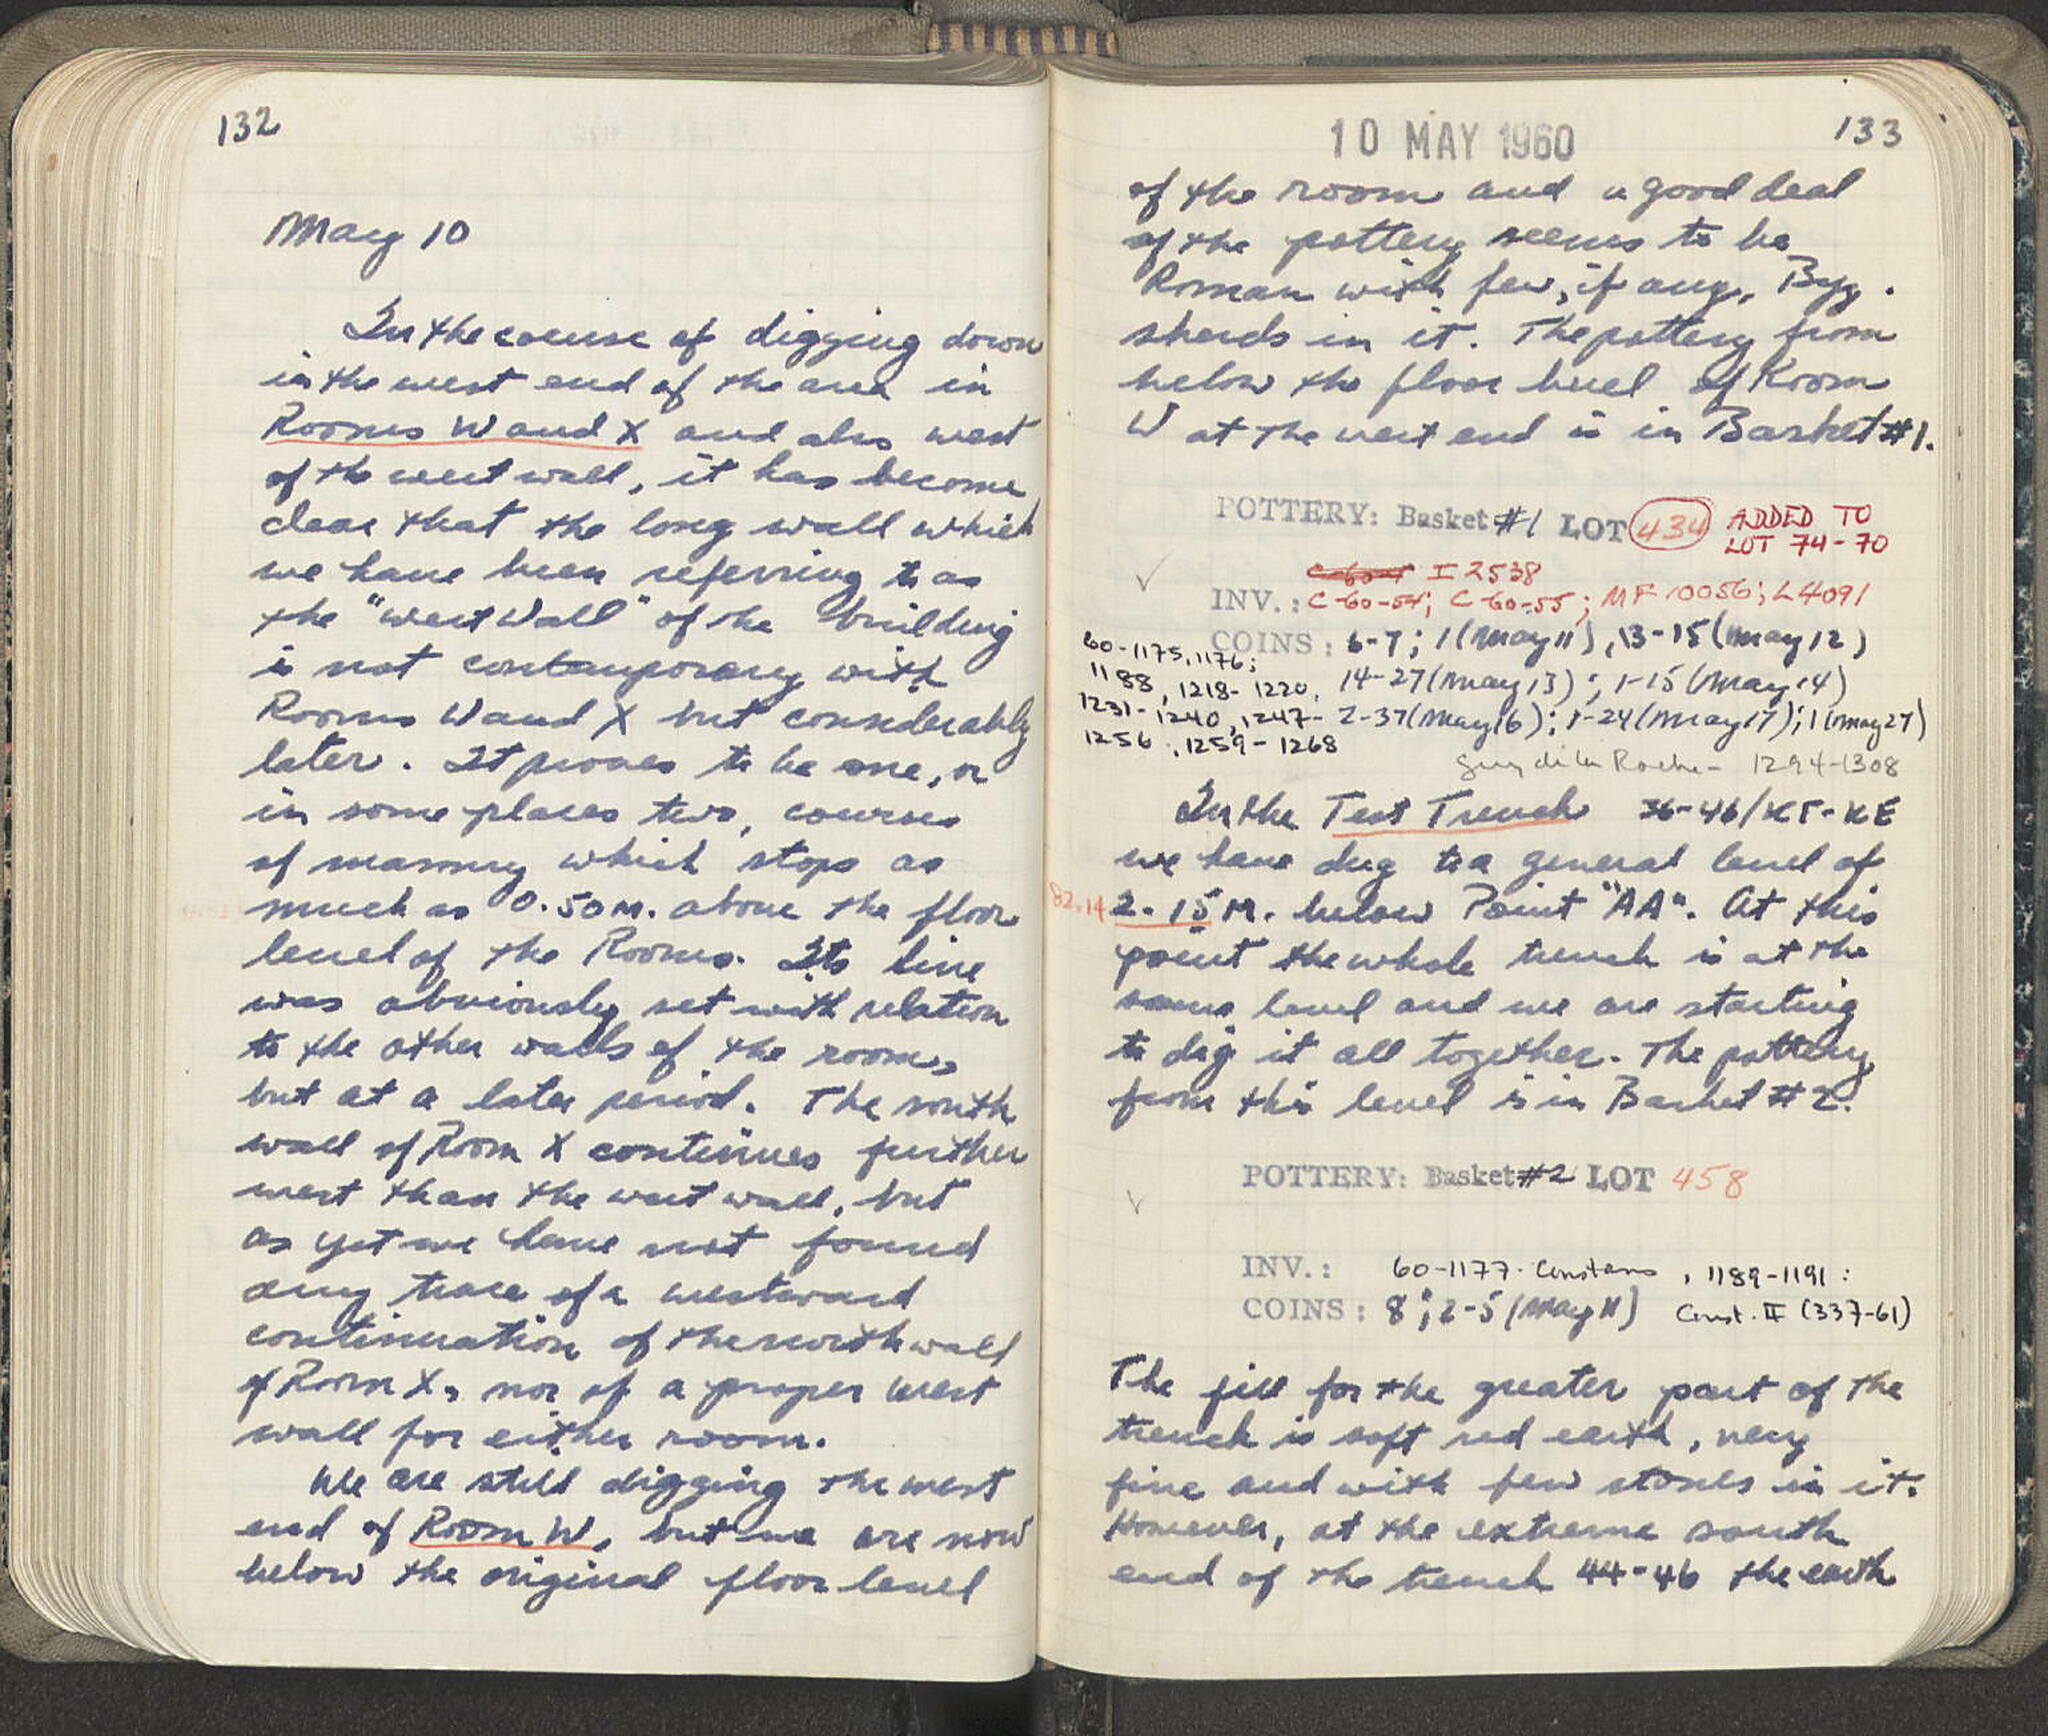 132
May 10
In the course of digging down
in the west end of the area in
Rooms W and X and also west
of the west wall, it has become
clear that the long wall which
we have been referring to as
the "West Wall" of the building
is not contemporary with
Rooms W and X but considerably
later. It proves to be one, or
in some places two, courses
of masonry which stops as
much as 0.50 M. above the floor
level of the Rooms. Its line
was obviously set with relation
to the other walls of the rooms,
but at a later period. The south
wall of Room X continues further
west than the west wall, but
as yet we have not found
any trace of a westward
continuation of the north wall
of Room X, nor of a proper west
wall for either room.
We are still digging the west
end of Room W, but we are now
below the original floor level
10 MAY 1960
133
of the room and a good deal
of the pottery seems to be
Roman with few, if any, Byz.
sherds in it. The pottery from
below the floor level of Room
W at the west end is in Basket #1.
POTTERY: Basket #1 LOT 434 ADDED TO
LOT 74-70
I 2538
INV.: C-60-54; C-60-55; MF 10056; L4091
COINS: 6-7; 1 (May 11), 13-15 (May 12)
60-1175, 1176;
1188, 1218-1220, 14-27 (May 13); 1-15 (May 14)
1231-1240, 1247- 2-37 (May 16); 1-24 (May 17); 1 (May 27)
1256, 1259-1268
Guy de la Roche - 1294-1308
In the Test Trench 36-46/KΓ-KE
we have dug to a general level of
82.14 2.15 M. below Point "AA". At this
point the whole trench is at the
same level and we are starting
to dig it all together. The pottery
from this level is in Basket #2.
POTTERY: Basket #2 LOT 458
INV.: 60-1177. Constans, 1189-1191:
COINS: 8; 2-5 (May 11) Const. II (337-61)
The fill for the greater part of the
trench is soft red earth, very
fine and with few stones in it.
However, at the extreme south
end of the trench 44-46 the earth